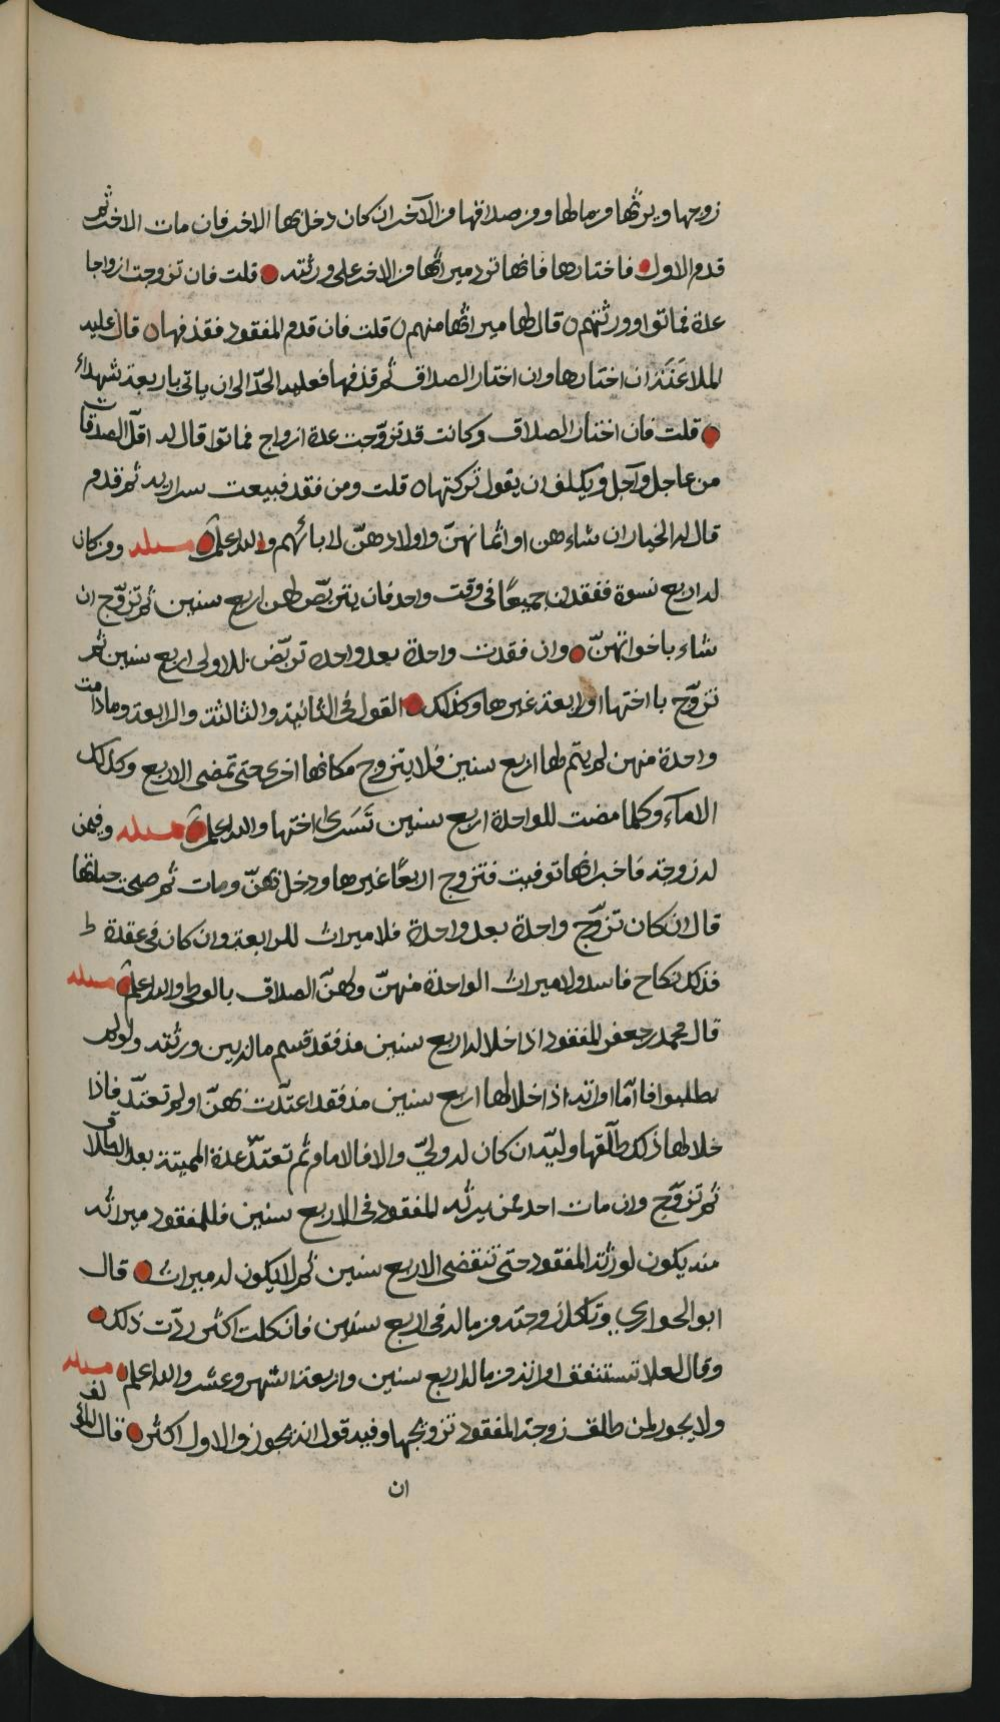 زوجها ويرثها من مالها ومن صداقها من الآخر ان كان دخل بها الاخر فان مات الاخر ثم
قدم الاول فاختارها فانها ترد ميراثها من الاخر على ورثته قلت فان تزوجت ازواجا
عدة فماتوا وورثتهم قال لها ميراثها منهم قلت فان قدم المفقود فقذفها قال عليه
الملاعَنَة ان اختارها وان اختار الصداق ثم قذفها فعليه الحدّ الى ان ياتى باربعة شهداء
قلت فان اختار الصداق وكانت قد تزوّجت عدة ازواج فماتوا قال له اقلّ الصدقات
من عاجل وآجل ويكلف ان يقول تركتها قلت ومن فقد فبيعت سراريه ثم قدم
قال له الخيار ان شاء هن او اثمانهنّ واولادهنّ لابائهم والله اعلم مسئله ومن كان
له اربع نسوة ففقدن جميعًا فى وقت واحد فان يتربّص لهن اربع سنين ثم تزوّج ان
شاء باخواتهنّ وان فقدت واحدة بعد واحده تربّص للاولى اربع سنين ثم
تزوّج باختها او رابعة غيرها وكذلك القول فى الثانية والثالثة والرابعة وما دامت
واحدة منهن لم يتم لها اربع سنين فلا يتزوج مكانها اخرى حتى تمضى الاربع وكذلك
الاماء وكلما مضت للواحدة اربع سنين تَسَرى اختها والله اعلم مسئله وفيمن
له زوجة فاخبر انها توفيت فتزوج اربعًا غيرها ودخل بهنّ ومات ثم صحت حياتها
قال ان كان تزوّج واحدة بعد واحدة فلا ميراث للرابعة وان كان فى عقدة
فذلك نكاح فاسد ولا ميراث الواحدة منهنّ ولهنّ الصداق بالوطى والله اعلم مسئله
قال محمد بن جعفر للمفقود اذا خلا له اربع سنين مذ فقد قسم ماله بين ورثته ولو لم
يطلبوا فاما امراته اذا خلا لها اربع سنين مذ فقد اعتدّت بهنّ او لم تعتدّ فاذا
خلا لها ذلك طلّقها وليّه ان كان له وليّ والا فالامام ثم تعتدّ عدة المميتة بعد الطلاق
ثم تزوّج وان مات احد ممن يرثه المفقود فى الاربع سنين فللمفقود ميراثه
منه يكون لورثة المفقود حتى تنقضى الاربع سنين ثم لا يكون له ميراث قال
ابو الحواري وتاكل زوجته من ماله فى اربع سنين فان كلت اكثر ردّت ذلك
وقال لعلا تستنفق امراته من ماله اربع سنين واربعة اشهر وعشر والله اعلم مسئله
ولا يجوز لمن طلق زوجة المفقود تزويجها وفيه قول انه يجوز والاول اكثر قال
ان